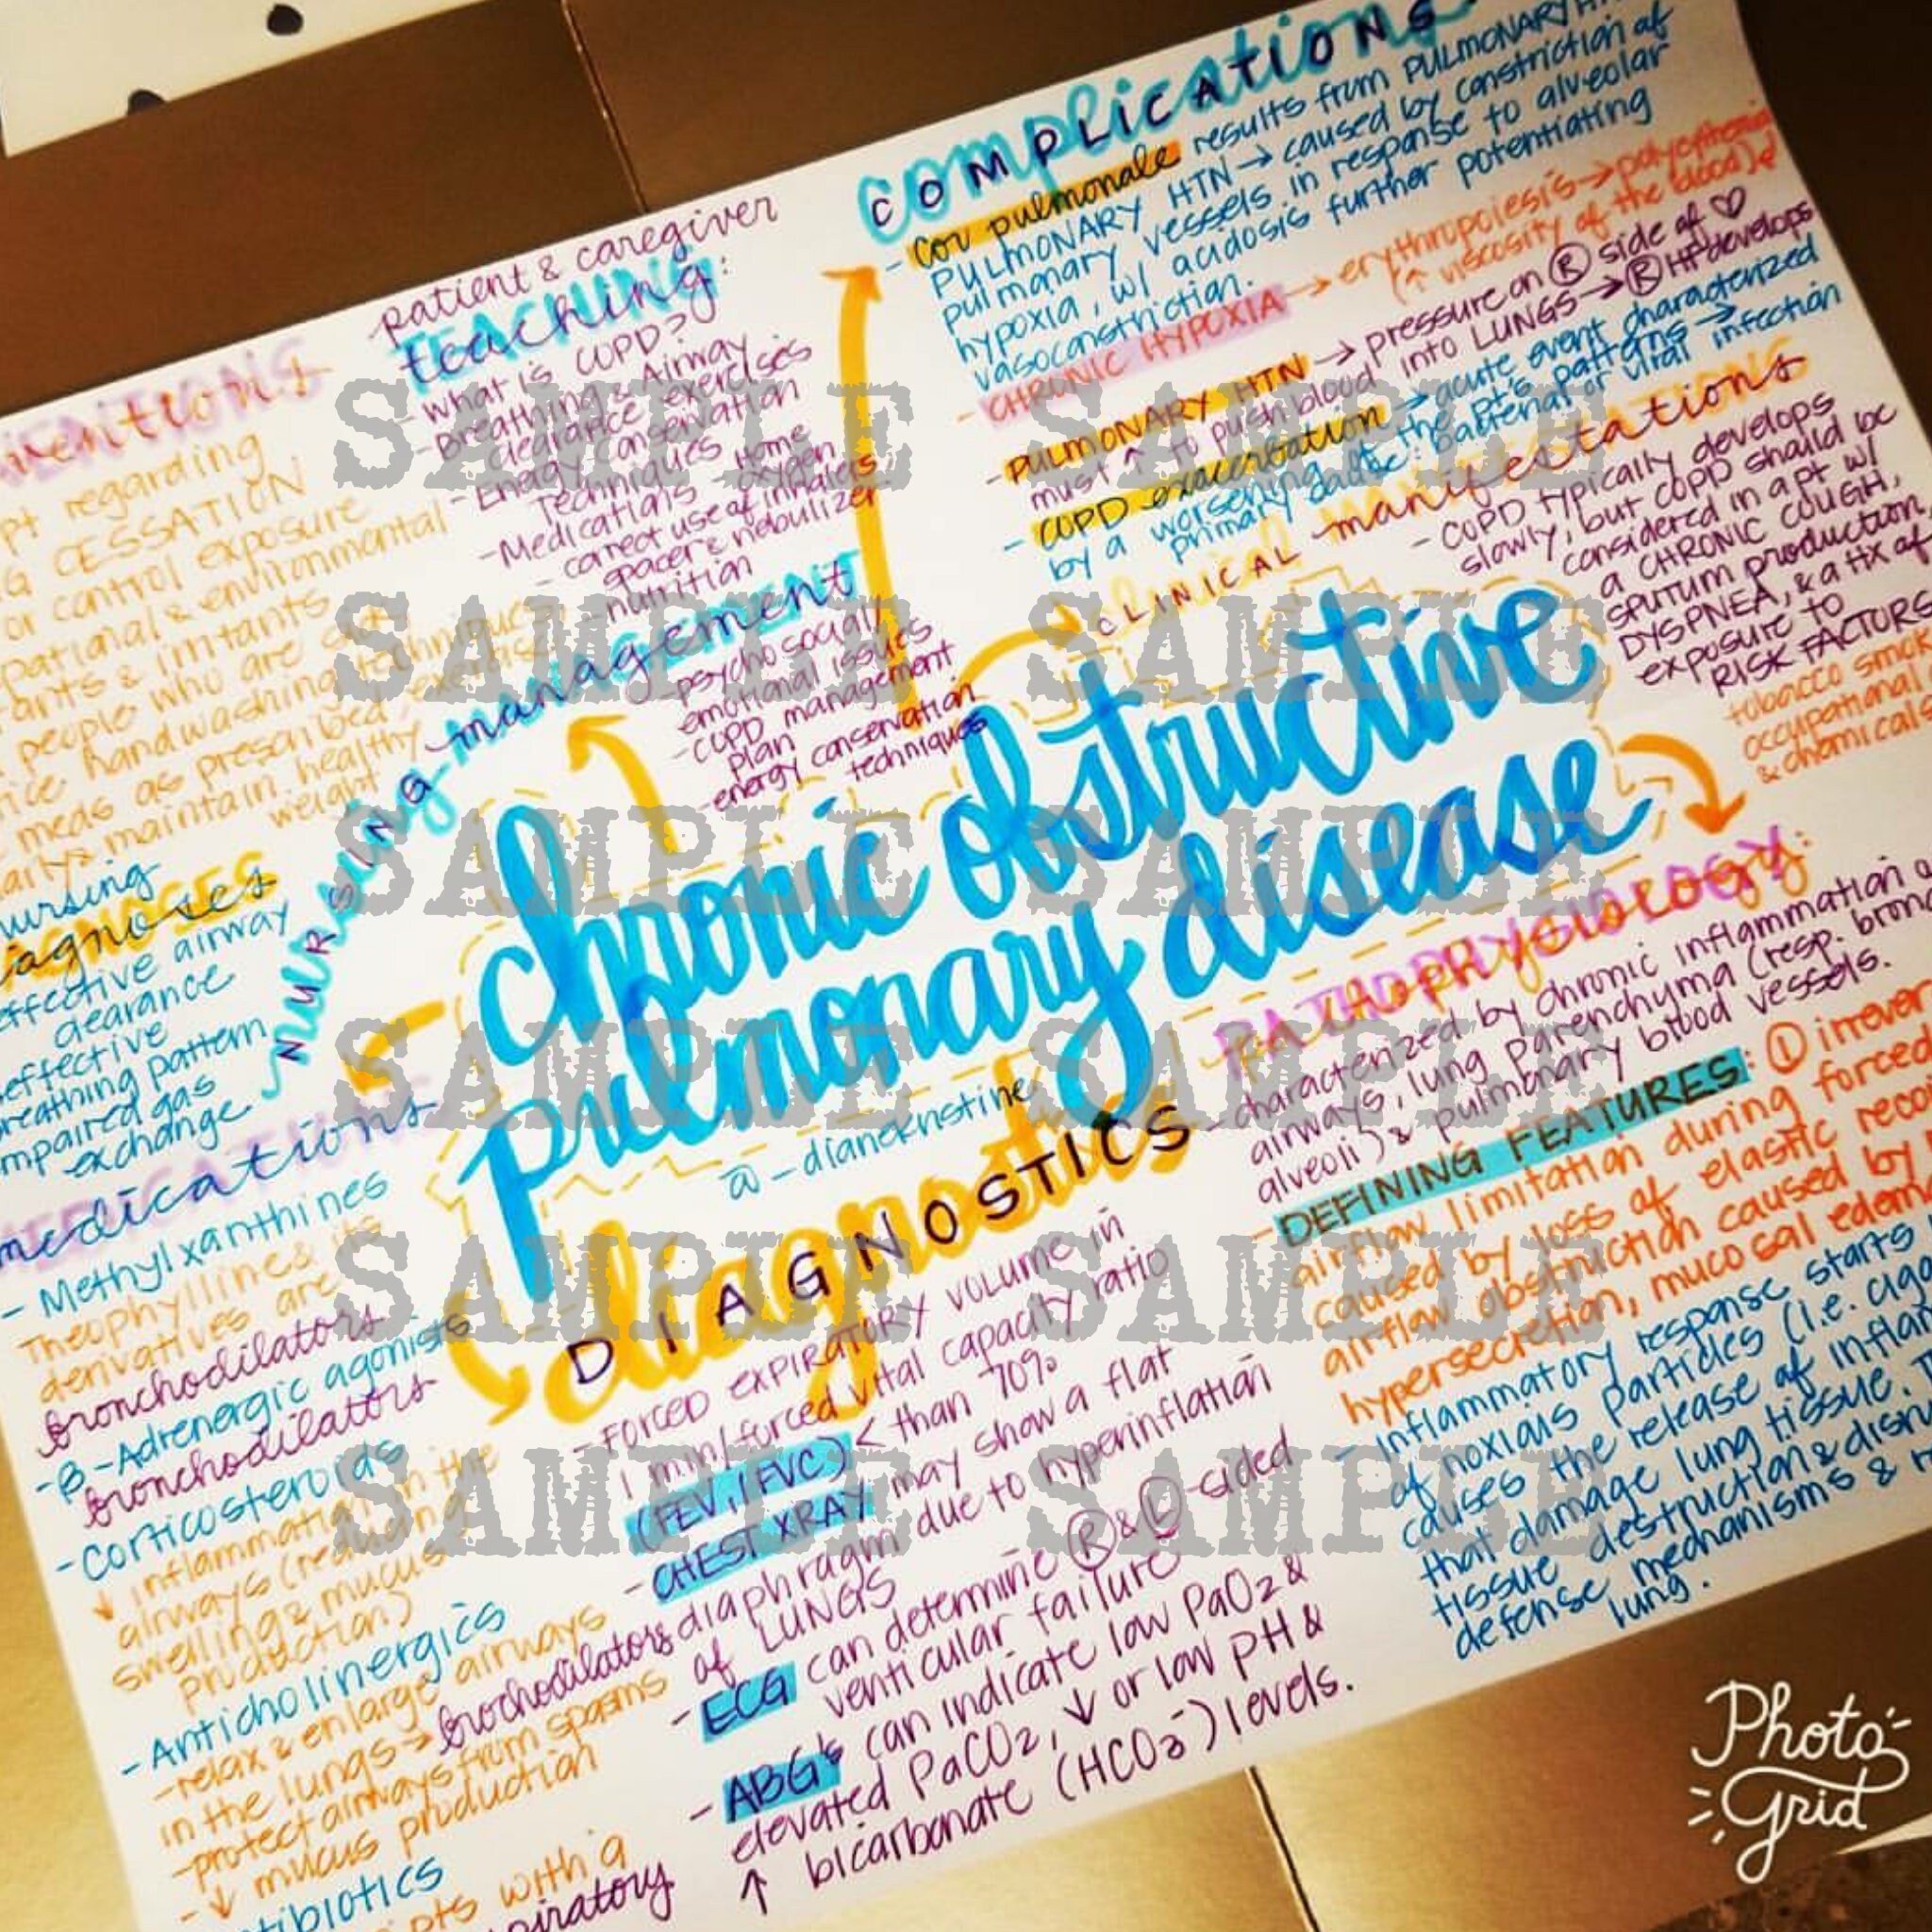 complications
COMPLICATIONS
- cor pulmonale results from PULMONARY HTN
PULMONARY HTN → caused by constriction of
pulmonary vessels in response to alveolar
hypoxia, w/ acidosis further potentiating
vasoconstriction.
- CHRONIC HYPOXIA → erythropoiesis →
(↑ viscosity of the blood)
- PULMONARY HTN → pressure on Ⓡ side of ♡
must ↑ to push blood into LUNGS → Ⓡ HF develops
- COPD exacerbation → acute event characterized
by a worsening of the pt's patterns →
primary cause: bacterial or viral infection
CLINICAL manifestations
- COPD typically develops
slowly, but COPD should be
considered in a pt w/
a CHRONIC COUGH,
SPUTUM production,
DYSPNEA, & a Hx of
exposure to
RISK FACTORS
tobacco smok
occupational
& chemicals
patient & caregiver
TEACHING
teaching:
- What is COPD?
- Breathing & Airway
clearance exercises
- Energy conservation
Techniques
- Medications
- Home
oxygen
- correct use of inhalers
spacer & nebulizer
- nutrition
- psychosocial/
emotional issues
- COPD management
plan
- energy conservation
techniques
NURSING management
pt regarding
G CESSATION
or control exposure
pational & environmental
ants & irritants
people who are sick
handwashing techniques
meds as prescribed, exercise
maintain healthy
weight
nursing
diagnoses
effective airway
clearance
effective
breathing pattern
impaired gas
exchange
chronic obstructive
pulmonary disease
@_dianernstine
MEDICATIONS
medications
- Methylxanthines
Theophylline & its
derivatives are
bronchodilators
- B-Adrenergic agonists
bronchodilators
- corticosteroids
↓ inflammation in the
airways (reducing
swelling & mucus
production)
- Anticholinergics
- relax & enlarge airways
in the lungs → brochodilators
- protect airways from spasms
- ↓ mucus production
tibiotics
pts with a
piratory
diagnostics
DIAGNOSTICS
- FORCED EXPIRATORY VOLUME in
1 min/forced vital capacity ratio
(FEV₁/FVC) < than 70%
- CHEST XRAY may show a flat
diaphragm due to hyperinflation
of LUNGS
- ECG can determine Ⓡ & Ⓛ-sided
ventricular failure
- ABG's can indicate low PaO2 &
elevated PaCO2, ↓ or low pH &
↑ bicarbonate (HCO3⁻) levels.
PATHOPHYSIOLOGY
pathophysiology:
- characterized by chronic inflammation o
airways, lung parenchyma (resp. bronc
alveoli) & pulmonary blood vessels.
- DEFINING FEATURES: ① irrever
airflow limitation during forced
caused by loss of elastic reco
airflow obstruction caused by
hypersecretion, mucosal edem
- Inflammatory response starts
of noxious particles (i.e. ciga
causes the release of inflam
that damage lung tissue. T
tissue destruction & disru
defense mechanisms &
lung.
SAMPLE SAMPLE
SAMPLE SAMPLE
SAMPLE SAMPLE
SAMPLE SAMPLE
SAMPLE SAMPLE
SAMPLE SAMPLE
Photo
Grid